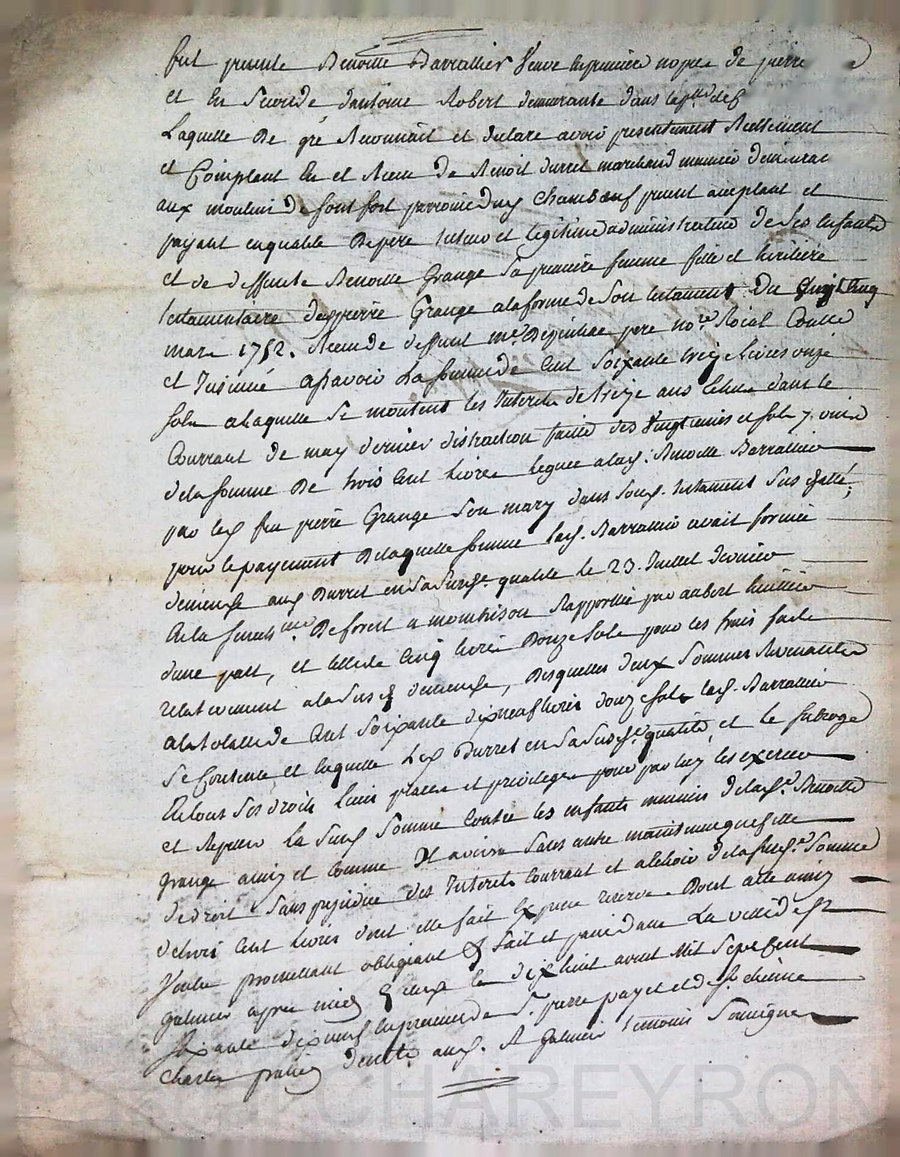 fut presente Benoitte Barrallier Veuve en premiere nopces de pierre
et En Seconde d'antoine Robert demeurante dans
Laquelle De gré Reconnait et declare avoir presentement Reellement
et Comptant Eu et Receu de Benoit durret marchand meunier demeurant
aux moulin De font fort parroisse dud Chambœuf present acceptant et
payant en qualité De pere tuteur et legitime administrateur de Ses Enfants
et de deffunte Benoitte Grange Sa premiere femme fille et heritiere
testamentaire de pierre Grange a la forme de Son testament Du vingt Cinq
mars 1752. Receu de deffunt me. pere nore. Roial Controllé
et Insinué a Sçavoir La Somme de Cent Soixante treize livres onze
Sols a laquelle Se montent les Interets de treize ans Echus dans le
Courrant de may dernier distraction faitte des vingtiemes et Sols p. livre
de la Somme De trois Cent livres leguée a lad. Benoitte Barrallier
par led feu pierre Grange Son mary dans Sond. testament Sus datté,
pour le payement De laquelle Somme lad. Barrallier avait formée
demande aud Durret en Sa Susd. qualité le 23. Juillet dernier
En la De forest a montbrison Rapportée par aubert huissier
d'une part, et Celle de Cinq livres Douze Sols pour les frais faits
relativement a la Susd demande, Desquelles deux Sommes Revenantes
a la totalle de Cent Soixante dixneuf livres douze Sols lad. Barrallier
Se Contente et en quitte Led Durret en Sa Susd. qualité, et le Subroge
En tous Ses droits lieux places et privileges pour par luy les exercer
et Repeter la Susd Somme Contre les enfants mineurs de lad. Benoitte
Grange ainsy et Comme Il avisera Sans autre maintenue que celle
De droit. Sans prejudice des Interets Courrant et a Echoir de la Susd. Somme
de trois Cent livres dont elle fait Expresse reserve. Dont acte ainsy
Voulu promettant obligeant &c. Fait et passé dans La ville de St
galmier après midy le dix huit aoust Mil Sept Cent
Soixante dixneuf En presence de Sr. pierre payet et de Sr. Etienne
Charles de St. galmier temoins Soussignes
Pascal CHAREYRON